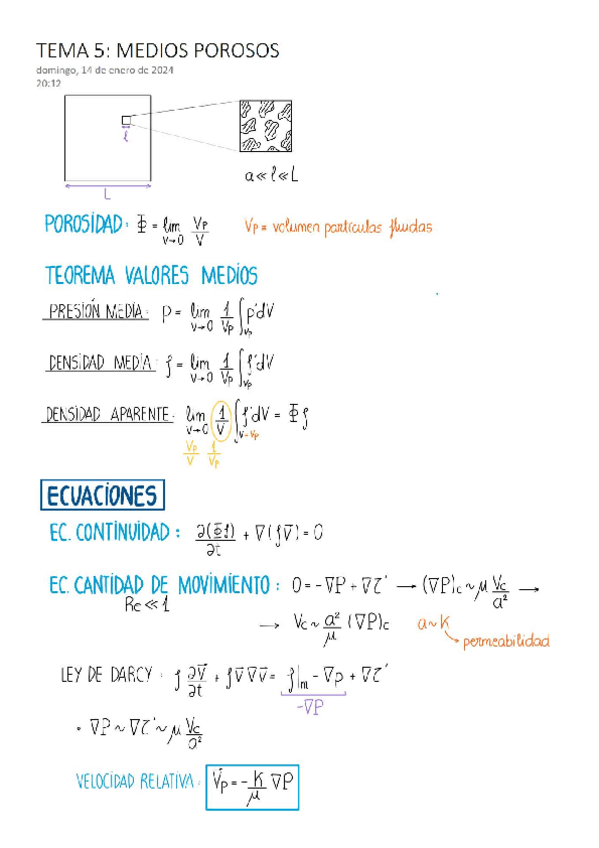 TEMA 5: MEDIOS POROSOS
domingo, 14 de enero de 2024
20:12
l
L
a ≪ l ≪ L
POROSIDAD: Φ = lim V→0 Vp/V Vp = volumen partículas fluidas
TEOREMA VALORES MEDIOS
PRESIÓN MEDIA: P = lim V→0 1/Vp ∫Vp p'dV
DENSIDAD MEDIA: ρ = lim V→0 1/Vp ∫Vp ρ'dV
DENSIDAD APARENTE: lim V→0 1/V ∫V-Vp ρ'dV = Φρ
Vp/V 1/Vp
ECUACIONES
EC. CONTINUIDAD: ∂(Φρ)/∂t + ∇(ρv̄) = 0
EC. CANTIDAD DE MOVIMIENTO: 0 = -∇P + ∇τ' → (∇P)c ~ μ Vc/a² →
Re ≪ 1
→ Vc ~ a²/μ (∇P)c a ~ K
permeabilidad
LEY DE DARCY: ρ ∂v̄/∂t + ρv̄∇v̄ = ρf̄m - ∇p + ∇τ'
-∇P
• ∇P ~ ∇τ' ~ μ Vc/a²
VELOCIDAD RELATIVA: v̄p = - K/μ ∇P